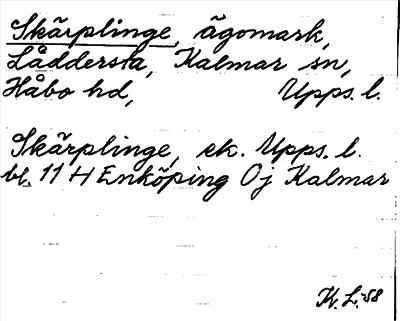 Skärplinge, ägomark,
Låddersta, Kalmar sn,
Håbo hd, Upps. l.
Skärplinge, ek. Upps. l.
bl. 11 H Enköping Oj Kalmar
K. L. -58